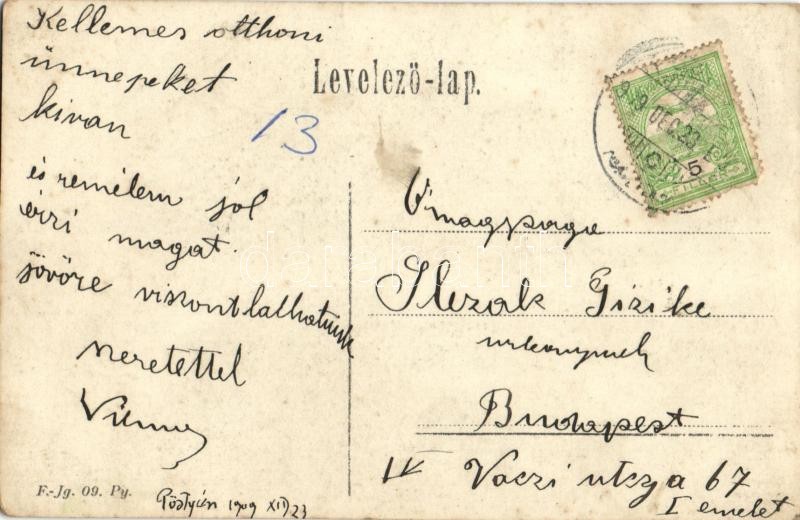 Kellemes otthoni
ünnepeket
kivan
és remélem jol
érzi magat.
jövöre viszontlathatunk
szeretettel
Vilma
13
Levelező-lap.
DEC. 23
5
FILLÉR
Slezak Gizike
Budapest
IV Vaczi utcza 67
I emelet
F.-Jg. 09. Py.
Pöstyén 1909 XII/23